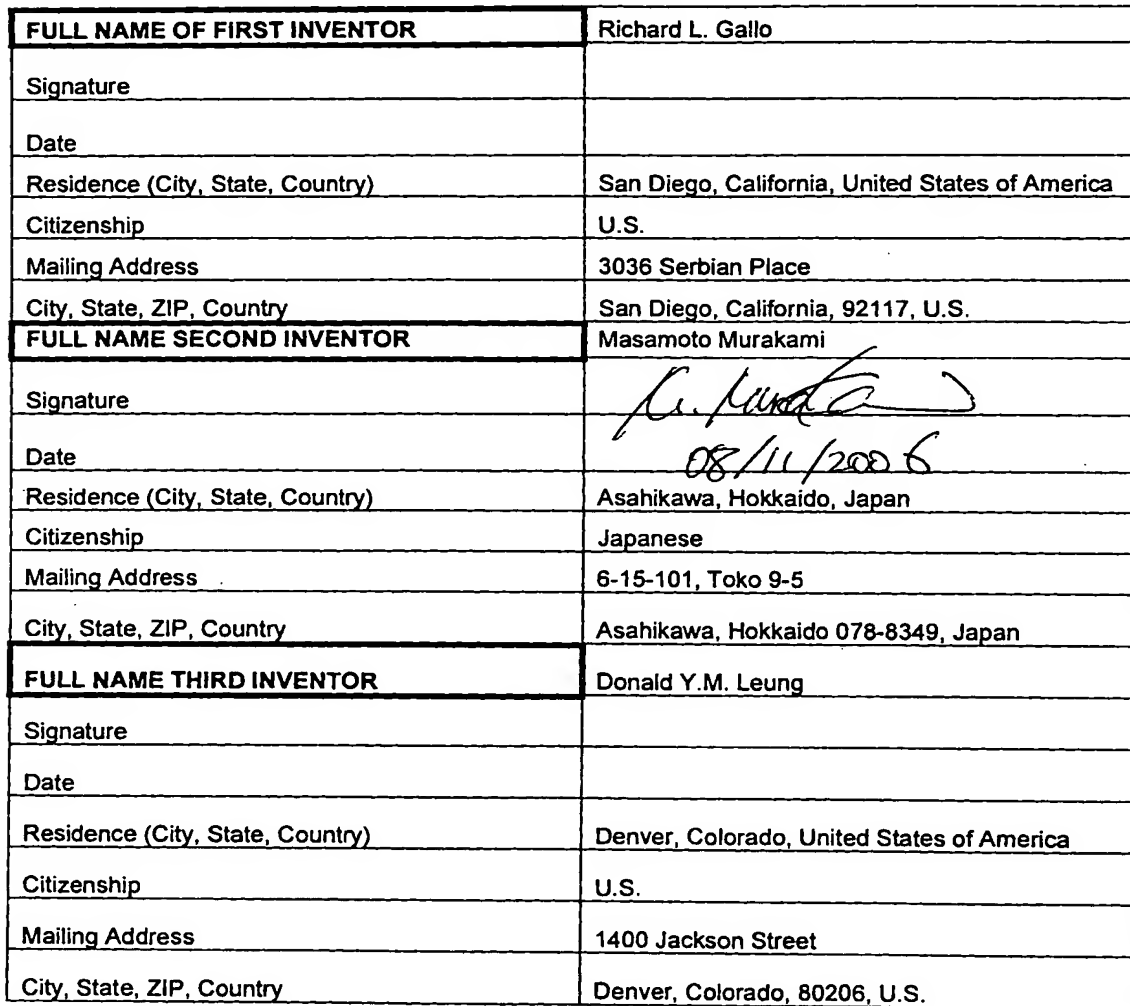 FULL NAME OF FIRST INVENTOR Richard L. Gallo
Signature
Date
Residence (City, State, Country) San Diego, California, United States of America
Citizenship U.S.
Mailing Address 3036 Serbian Place
City, State, ZIP, Country San Diego, California, 92117, U.S.
FULL NAME SECOND INVENTOR Masamoto Murakami
Signature
Date 08/11/2006
Residence (City, State, Country) Asahikawa, Hokkaido, Japan
Citizenship Japanese
Mailing Address 6-15-101, Toko 9-5
City, State, ZIP, Country Asahikawa, Hokkaido 078-8349, Japan
FULL NAME THIRD INVENTOR Donald Y.M. Leung
Signature
Date
Residence (City, State, Country) Denver, Colorado, United States of America
Citizenship U.S.
Mailing Address 1400 Jackson Street
City, State, ZIP, Country Denver, Colorado, 80206, U.S.